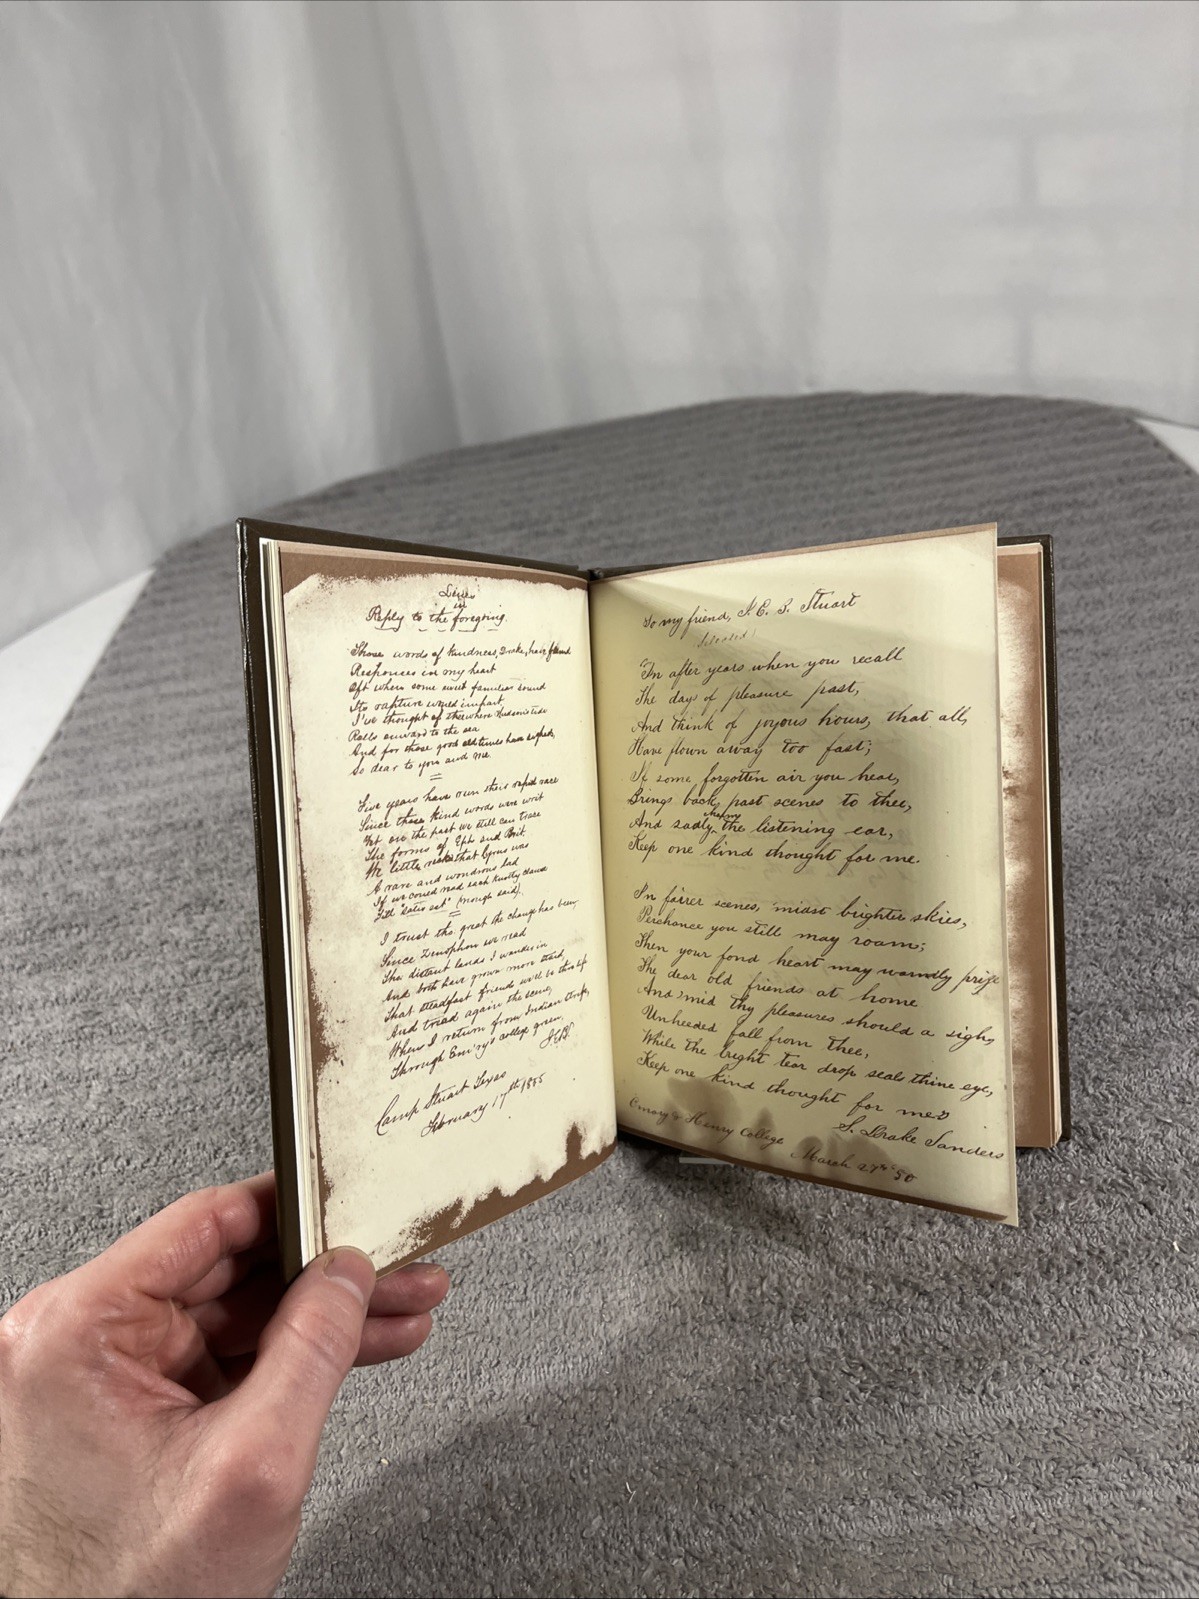 Lines
in
Reply to the foregoing.
Those words of kindness, Drake, have found
Responses in my heart
Oft when some sweet familiar sound
Its rapture would impart.
I've thought of thee where Hudson's tide
Rolls onward to the sea
And for those good old times have sighed,
So dear to you and me.
Five years have run their rapid race
Since those kind words were writ
Yet on the past we still can trace
The forms of Eph and Brit
We little that Cyrus was
A rare and wondrous lad
If we could read each knotty clause
Till "satis est" (enough said).
I trust tho. great the change has been
Since Zenophon we read
Tho distant lands I wander in
And both have grown more staid,
That steadfast friends we'll be thro life
And tread again the scene,
When I return from Indian strife,
Through Em'ry's college green.
J.E.B.
Camp Stuart Texas
February 17th 1855
To my friend, J. E. B. Stuart
(Selected)
In after years when you recall
The days of pleasure past,
And think of joyous hours, that all,
Have flown away too fast;
If some forgotten air you hear,
Brings back, past scenes to thee,
And sadly the listening ear,
Keep one kind thought for me.
In fairer scenes, 'midst brighter skies,
Perchance you still may roam;
Then your fond heart may warmly prize
The dear old friends at home
And 'mid thy pleasures should a sigh,
Unheeded fall from thee,
While the bright tear drop seals thine eye,
Keep one kind thought for me.
S. Drake Sanders
Emory & Henry College
March 27th '50